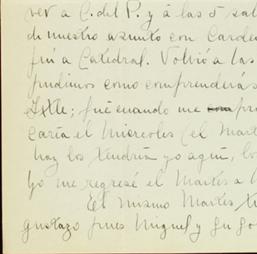 ver a C. del P. y á las 5 sal
de nuestro asunto con Carde
fuí a Catedral. Volvió a las
pudimos como comprenderás
fué cuando me pro
caría el Miercoles (el Mart
hoy los tendría yo aquí, lo
Yo me regresé el Martes a l
El mismo Martes, tu
Gustavo pues Miguel y